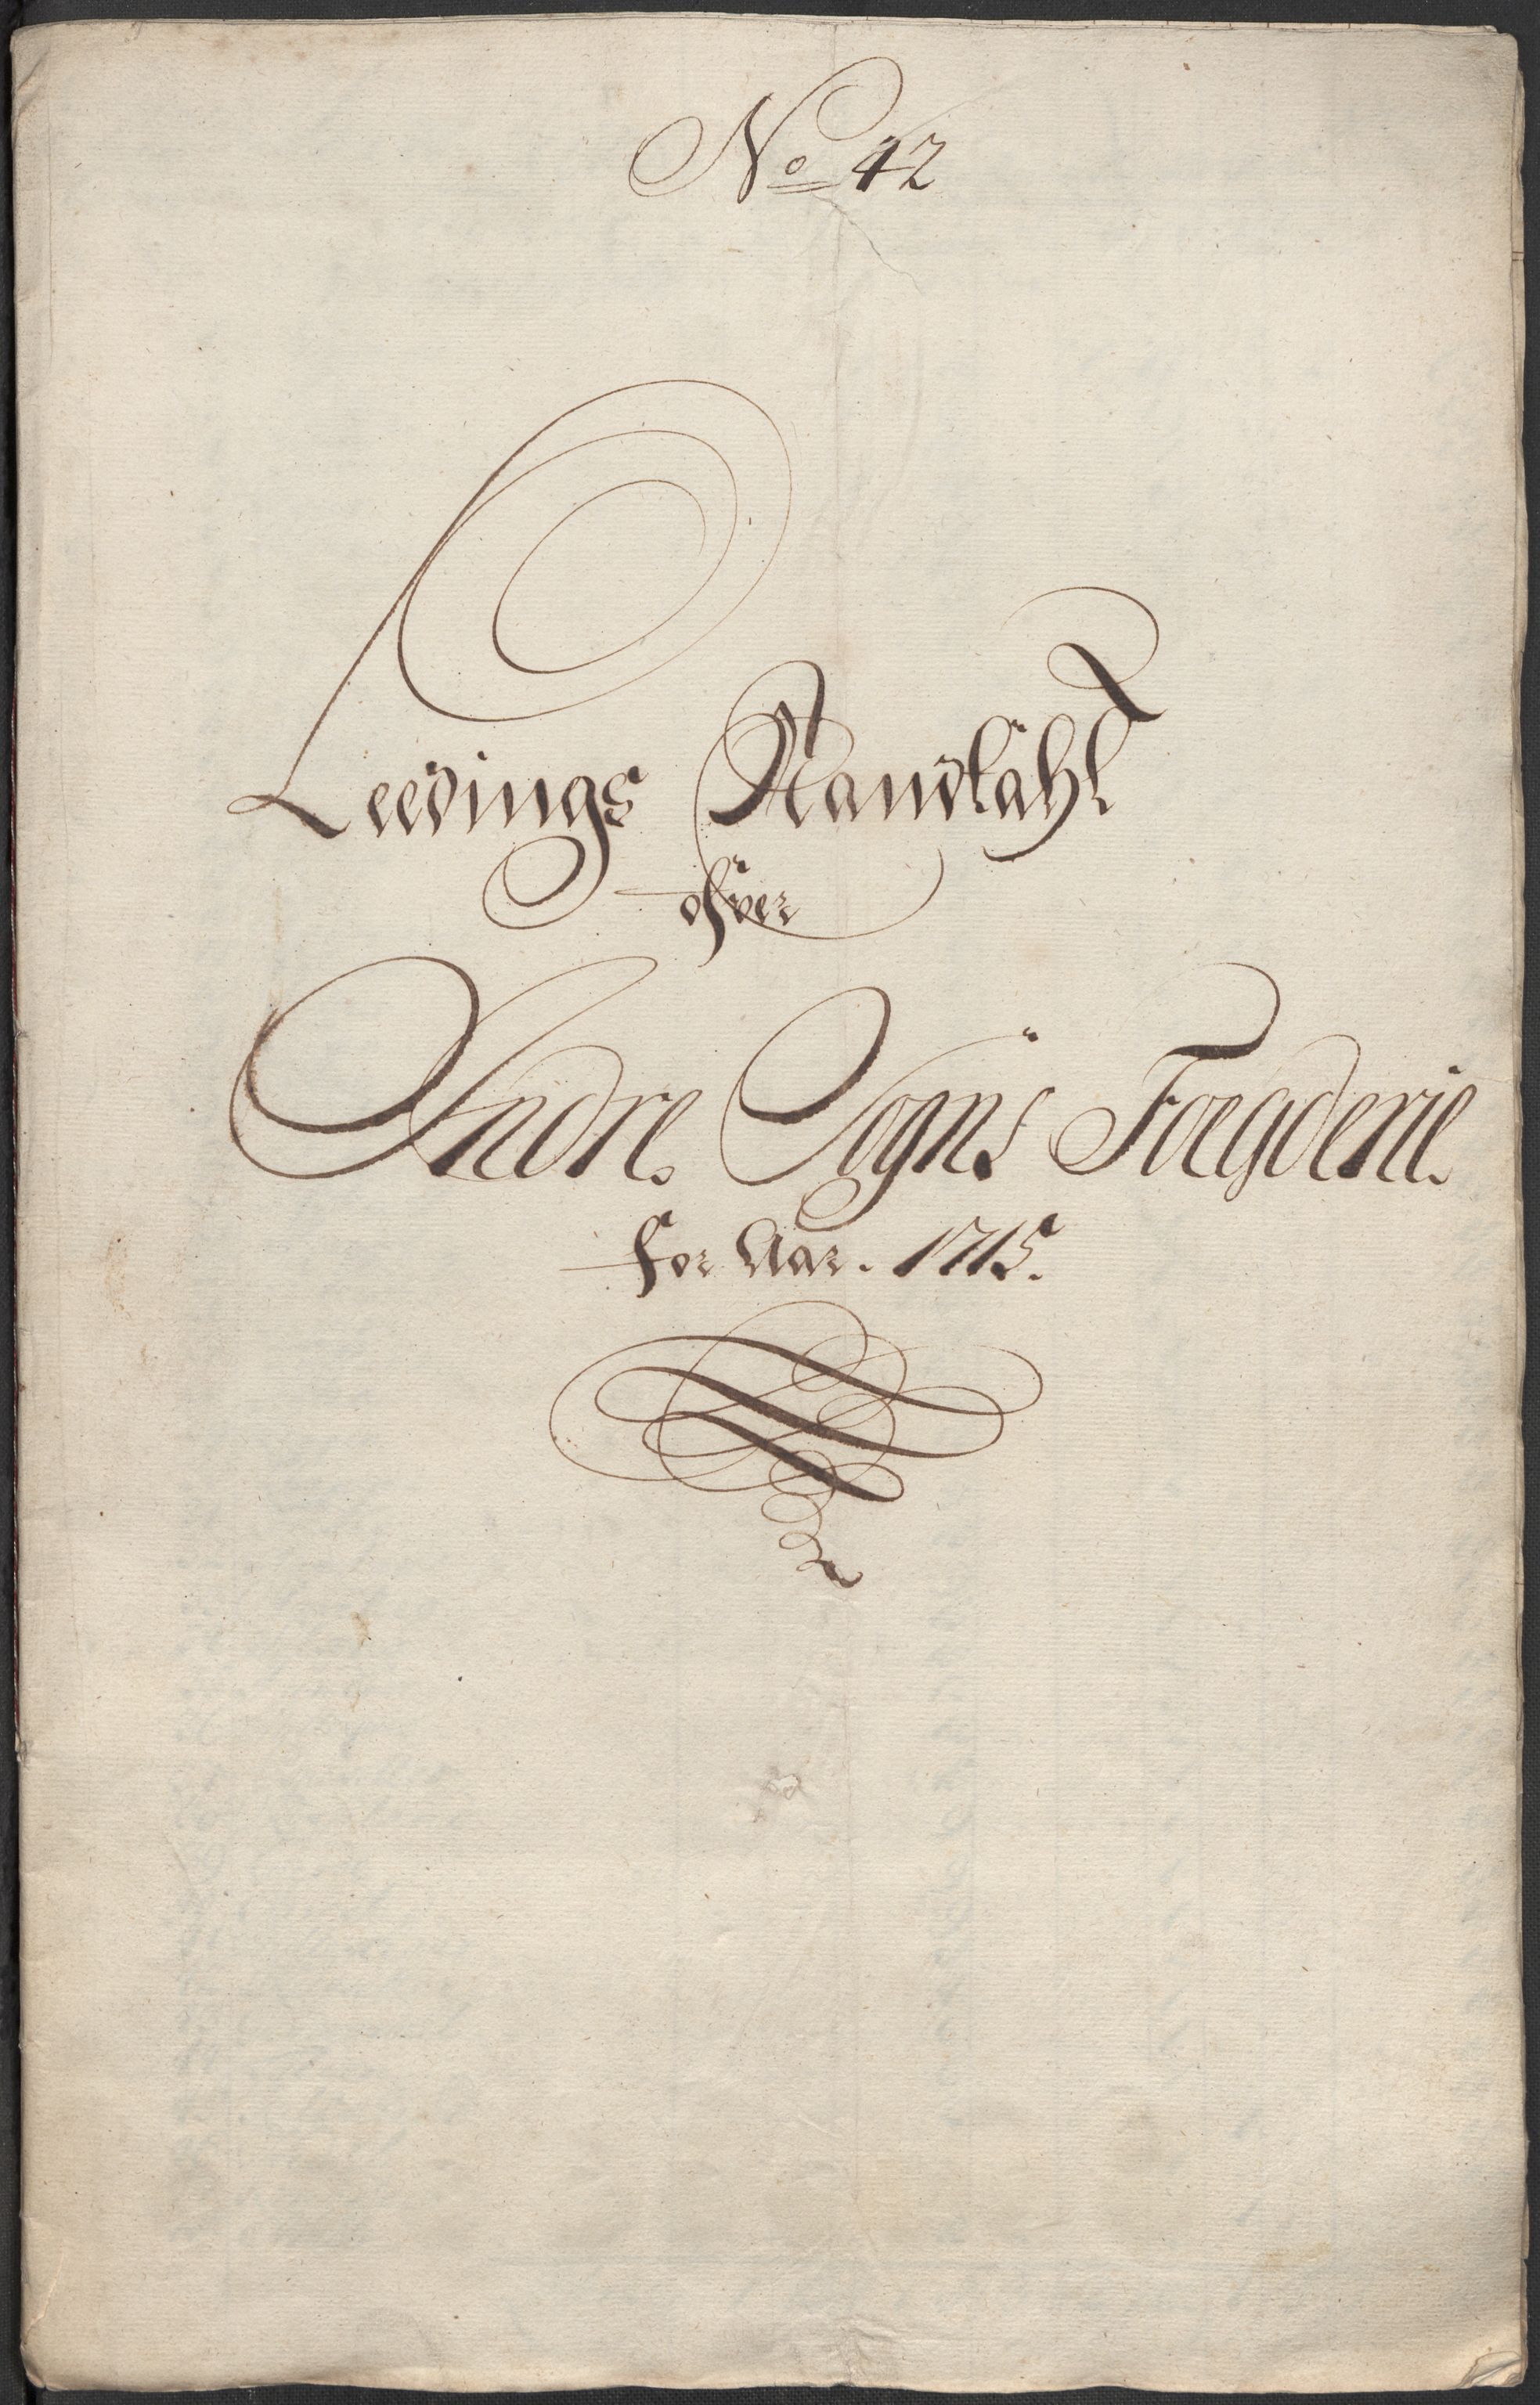 No 42
Leedings Mandtahl
ofver
Indre Sogns Foegderie
for Aar. 1715.